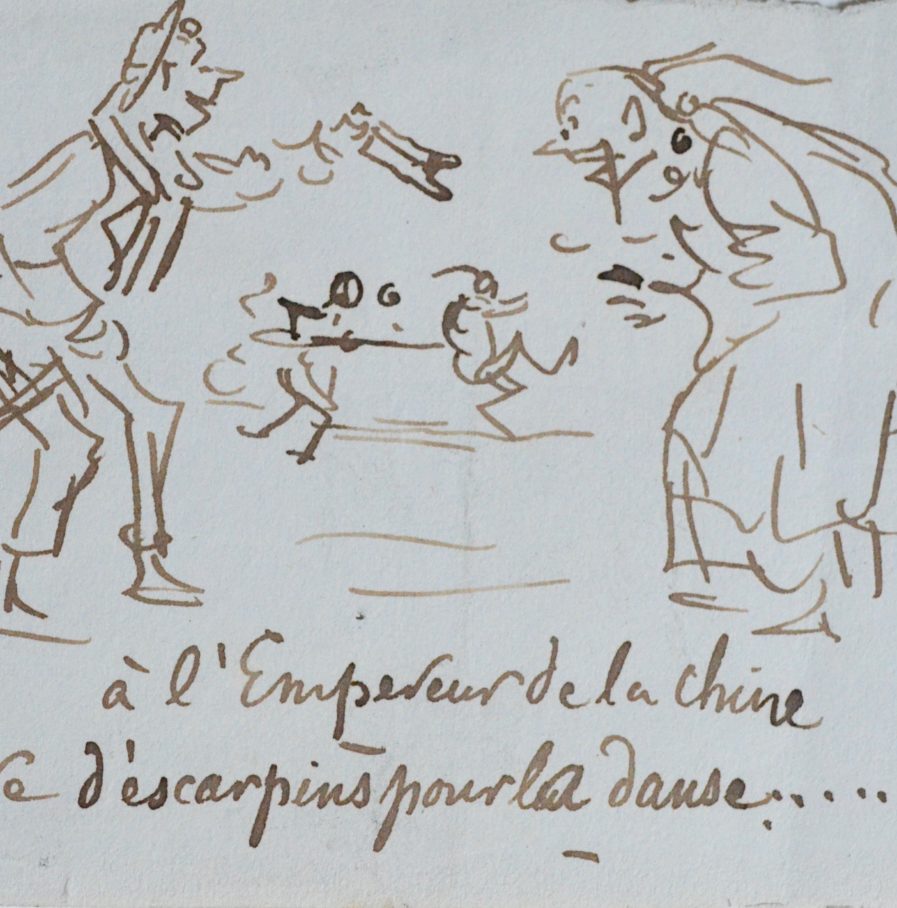 à l'Empereur de la Chine
d'escarpins pour la danse.....